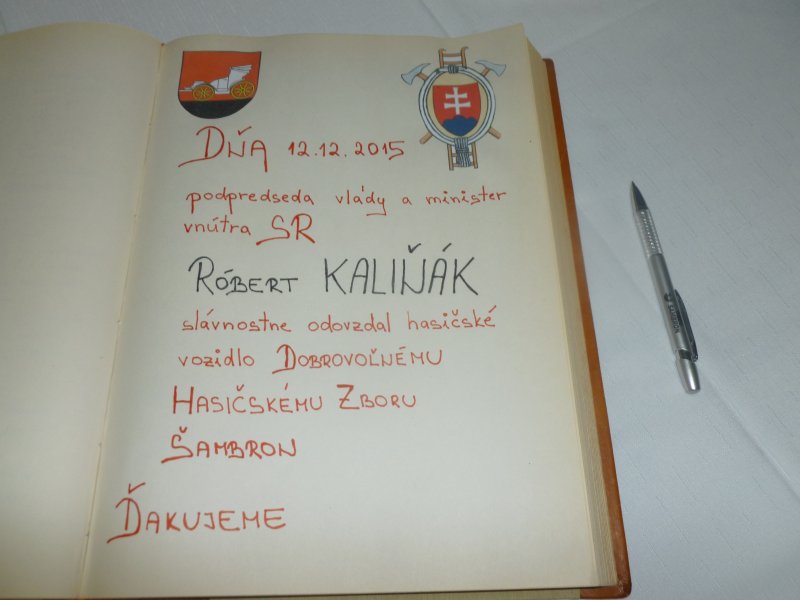 Dňa 12.12.2015
podpredseda vlády a minister
vnútra SR
Róbert KALIŇÁK
slávnostne odovzdal hasičské
vozidlo DOBROVOĽNÉMU
HASIČSKÉMU ZBORU
ŠAMBRON
ĎAKUJEME